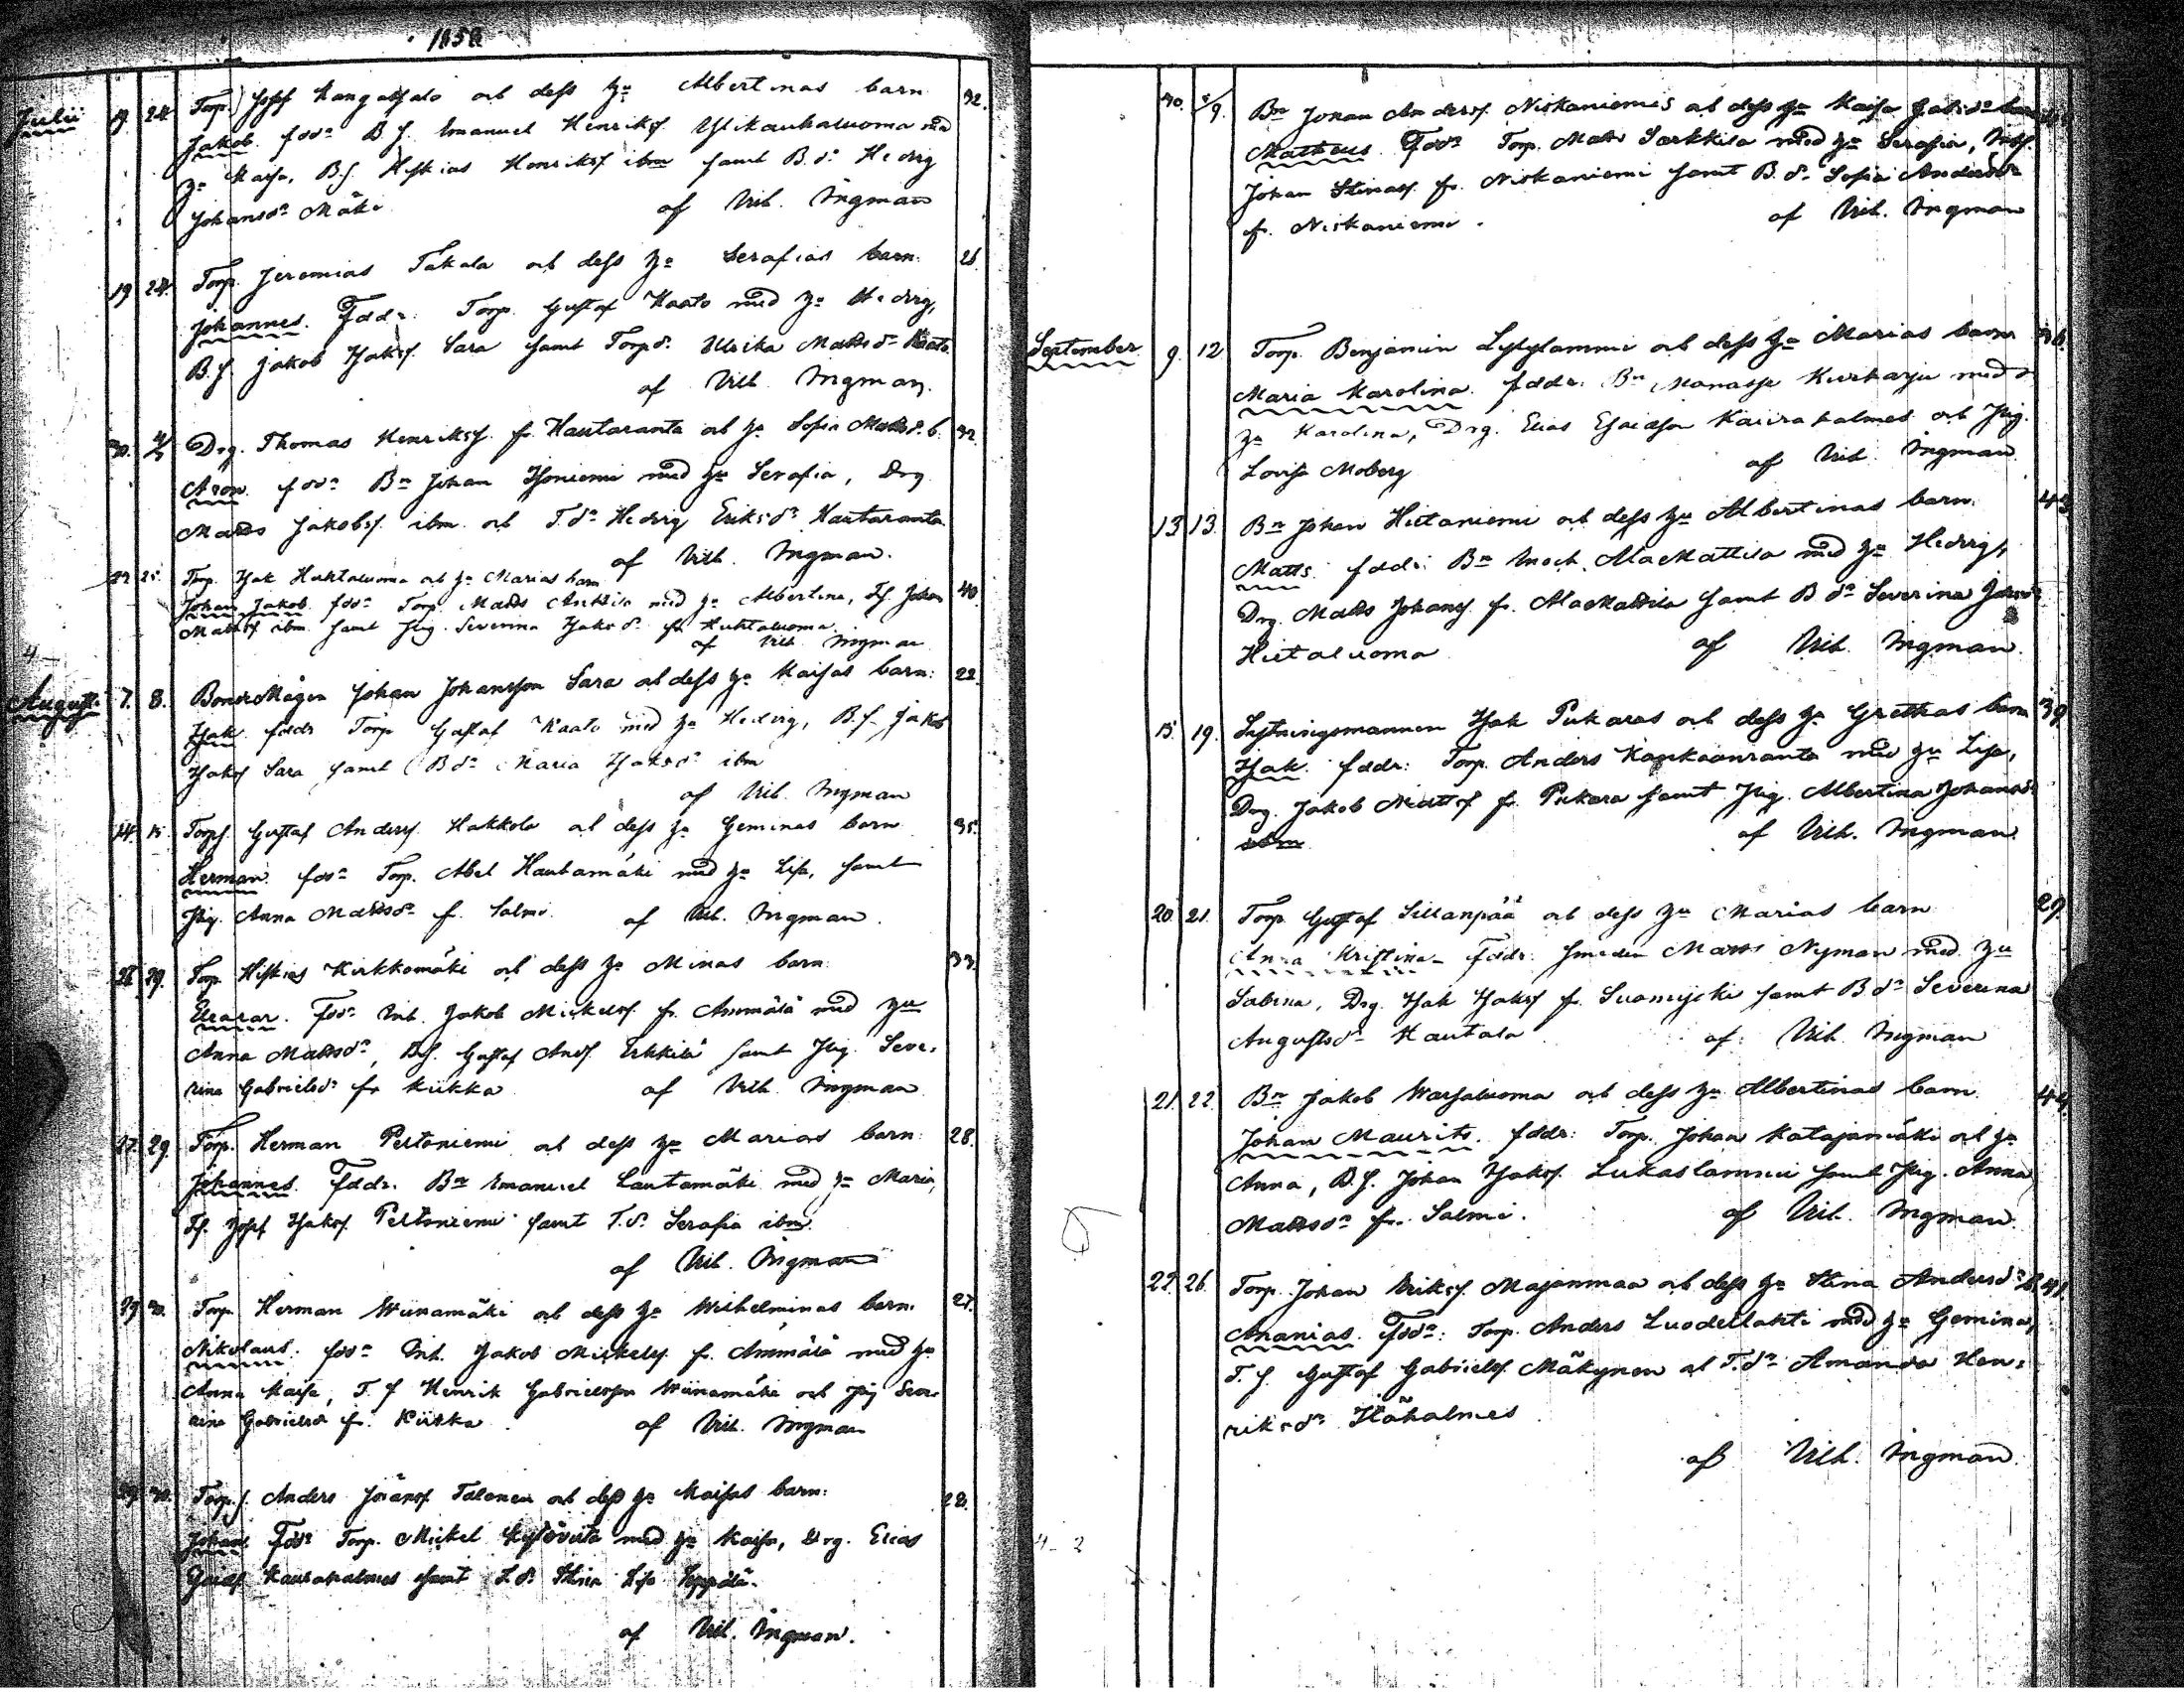 1858
Julii 19. 24. Torp. Josef Kangassalo och dess hu Albertinas barn 32.
Jakob. fddr B.s. Emanuel Henrikss. Ylikauhaluoma med
hu Maisa, B.s. Hiskias Henrikss ibm samt B.dr Hedvig
Johansdr Mäki af Vilh. Ingman
19 24. Torp. Jeremias Takala och dess hu Serafias barn. 26.
Johannes. Fddr. Torp. Gustaf Kaato med hu Hedvig,
B.s. Jakob Isakss. Sara samt Torpd. Ulrika Mattsdr Kaato.
af Vilh. Ingman.
30. Drg. Thomas Henrikss. fr. Hautaranta och hu Sofia Mattsd. b. 32.
Aron. fddr Bn Johan Isoniemi med hu Serafia, Drg
Matts Jakobss. ibm. och T.dr Hedvig Eriksdr Hautaranta.
af Vilh. Ingman.
22 25. Torp. Isak Huhtaluoma och hu Marias barn
Johan Jakob. fddr Torp. Matts Anttila med hu Albertina, Ts. Johan 40.
Mattss ibm. samt Pig. Severina Isaksd. fr Huhtaluoma.
af Vilh. Ingman
4
August. 7. 8. BondeMågen Johan Johansson Sara och dess hu Kaisas barn: 22.
Isak. fddr Torp. Gustaf Kaato med hu Hedvig, B.s. Jakob
Isakss Sara samt Bdr Maria Isaksdr ibm
af Vilh. Ingman
14. 15. Torps. Gustaf Anderss. Hakkola och dess hu Geminas barn 35.
Herman. fddr Torp. Abel Hautamäki med hu Lisa, samt
Pig. Anna Mattsdr fr. Salmi. af Vilh. Ingman.
28. 29. Torp. Hiskias Kirkkomäki och dess hu Minas barn. 33.
Eleazar. Fddr Inh. Jakob Mickelss. fr. Ammälä med hu
Anna Mattsdr, B.s. Gustaf Andss. Erkkilä samt Pig. Seve-
rina Gabrielsdr fr Kiikka af Vilh. Ingman
27. 29. Torp. Herman Peltoniemi och dess hu Marias barn: 28.
Johannes. Fddr. Bn Emanuel Lautamäki med hu Maria,
Ts. Josef Isakss. Peltoniemi samt T.dr Serafia ibm.
af Vilh. Ingman
29 30. Torp. Herman Wiinamäki och dess hu Wilhelminas barn. 27.
Nikolaus. fddr Inh. Jakob Mickelss. fr. Ammälä med hu
Anna Kaisa, T.s Henrik Gabrielsson Wiinamäki och Pig Seve-
rina Gabrielsd fr. Kiikka. af Vilh. Ingman
29 30. Torps. Anders Johanss Talonen och dess hu Maisas barn. 28.
Johan. Fddr Torp. Mickel med hu Kaisa, Drg. Elias
Kaurakalmes samt Lisa Seppälä.
af Vilh. Ingman.
30. 5/9. Bn Johan Anderss. Niskaniemis och dess hu Kaisa Gabsdr barn
Matheus. Fddr Torp. Matts Sarkkila med hu Serafia,
Johan Stinass. fr. Niskaniemi samt B.dr Sofia Andersdr
fr. Niskaniemi. af Vilh. Ingman
September 9. 12 Torp. Benjamin Lylylammi och dess hu Marias barn 36.
Maria Karolina. fddr. Bn Manasse Kurkarju med
hu Karolina, Drg. Elias Esaiasson Kaurakalmes och Pig.
Lovisa Moberg af Vilh. Ingman.
13 13. Bn Johan Hietaniemi och dess hu Albertinas barn. 43.
Matts. fddr: Bn Enoch. AlaMattila med hu Hedvig,
Drg. Matts Johanss. fr. AlaMattila samt B dr Severina
Hietaluoma af Vilh. Ingman.
15. 19. Sytningsmannen Isak Pukaras och dess hu Grethas barn 39.
Isak. fddr: Torp. Anders Kankaanranta med hu Lisa,
Drg. Jakob Mattss fr. Pukara samt Pig. Albertina Johansdr
ibm. af Vilh. Ingman.
20. 21. Torp. Gustaf Sillanpää och dess hu Marias barn 29.
Anna Kristina. Fddr. Smeden Matts Nyman med hu
Sabina, Drg. Isak Isakss fr. Suomijoki samt B dr Severina
Augustsdr Kautala af Vilh. Ingman
21. 22. Bn Jakob Warsaluoma och dess hu Albertinas barn. 44.
Johan Maurits. fddr: Torp. Johan Katajamäki och hu
Anna, B.s. Johan Isakss. Lukaslammi samt Pig. Anna
Mattsdr fr. Salmi. af Vilh. Ingman.
22. 26. Torp. Johan Erikss. Majanmaa och dess hu Stina Andersdr b. 41.
Ananias. Fddr: Torp. Anders Luodelahti med hu Gemina,
T.s. Gustaf Gabrielss. Mäkynen och T.dr Amanda Hen-
riksdr Hökalmes
af Vilh. Ingman.
4-2